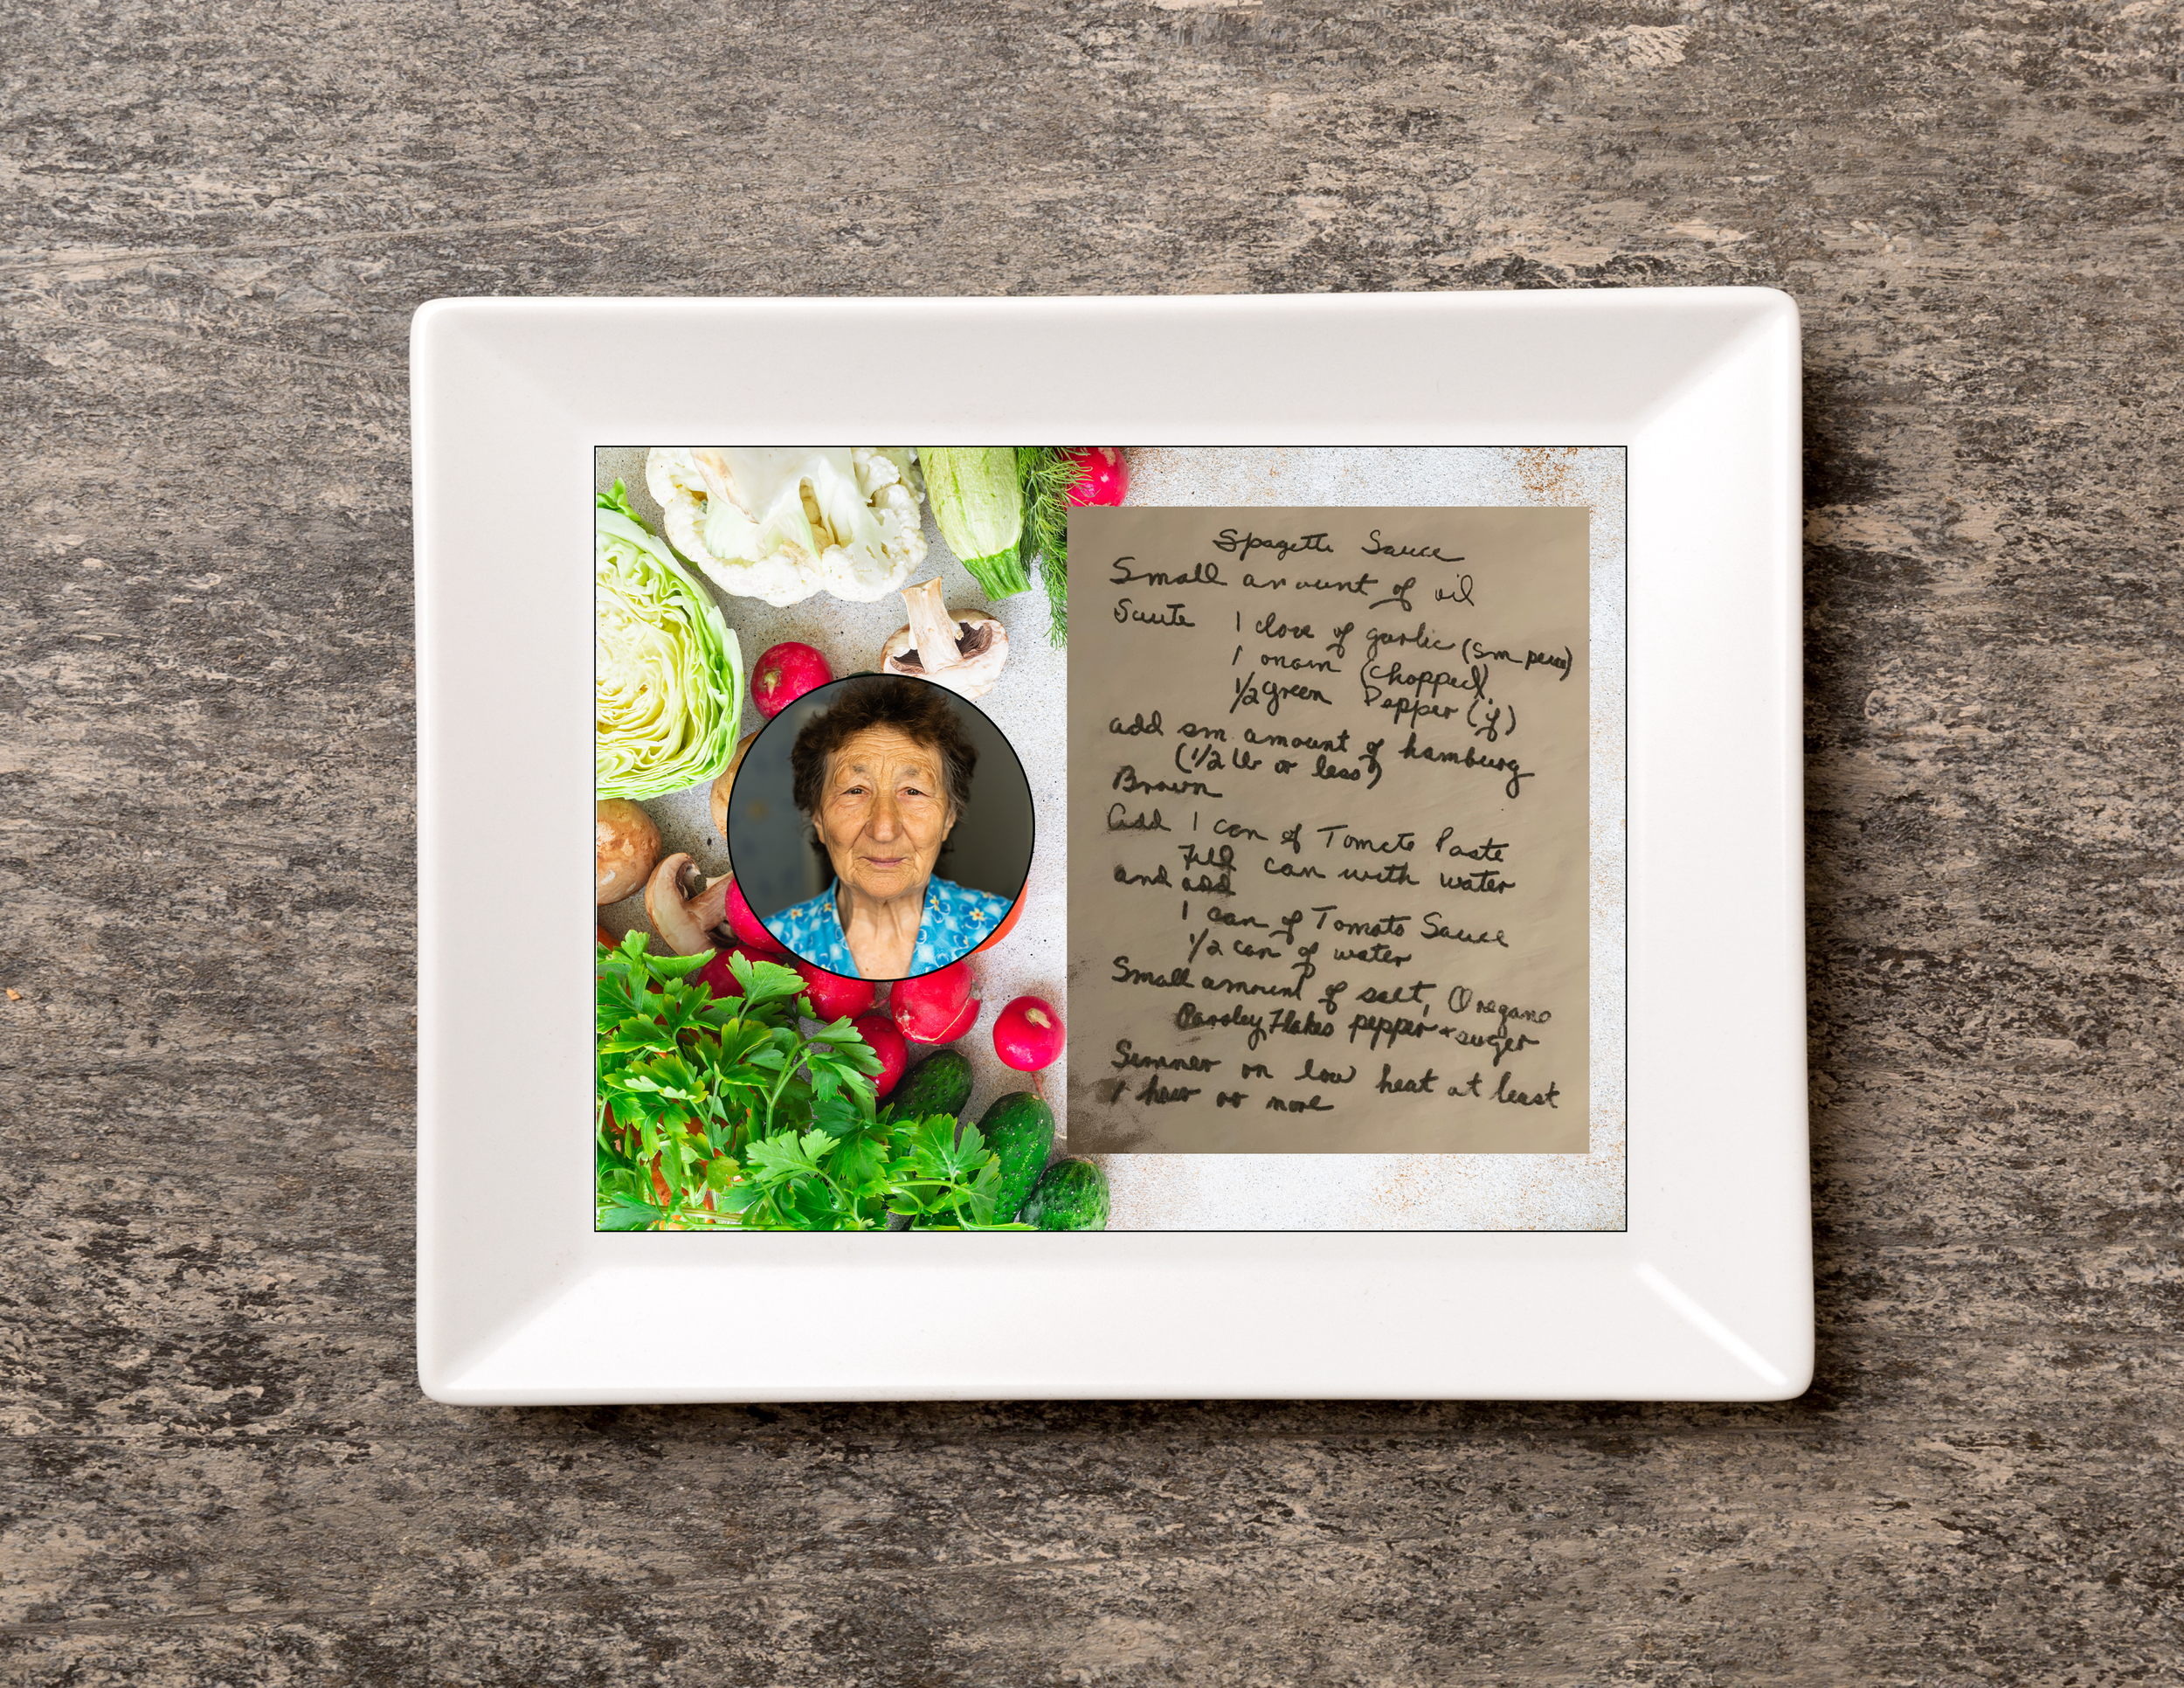 Spagetti Sauce
Small amount of oil
Saute 1 clove of garlic (sm piece)
1 onoin (chopped)
1/2 green Pepper (if)
add sm. amount of hamburg
(1/2 lb or less)
Brown
Add 1 can of Tomato Paste
Fill can with water
and add
1 can of Tomato Sauce
1/2 can of water
Small amount of salt, Oregano
Parsley Flakes pepper + suger
Simmer on low heat at least
1 hour or more